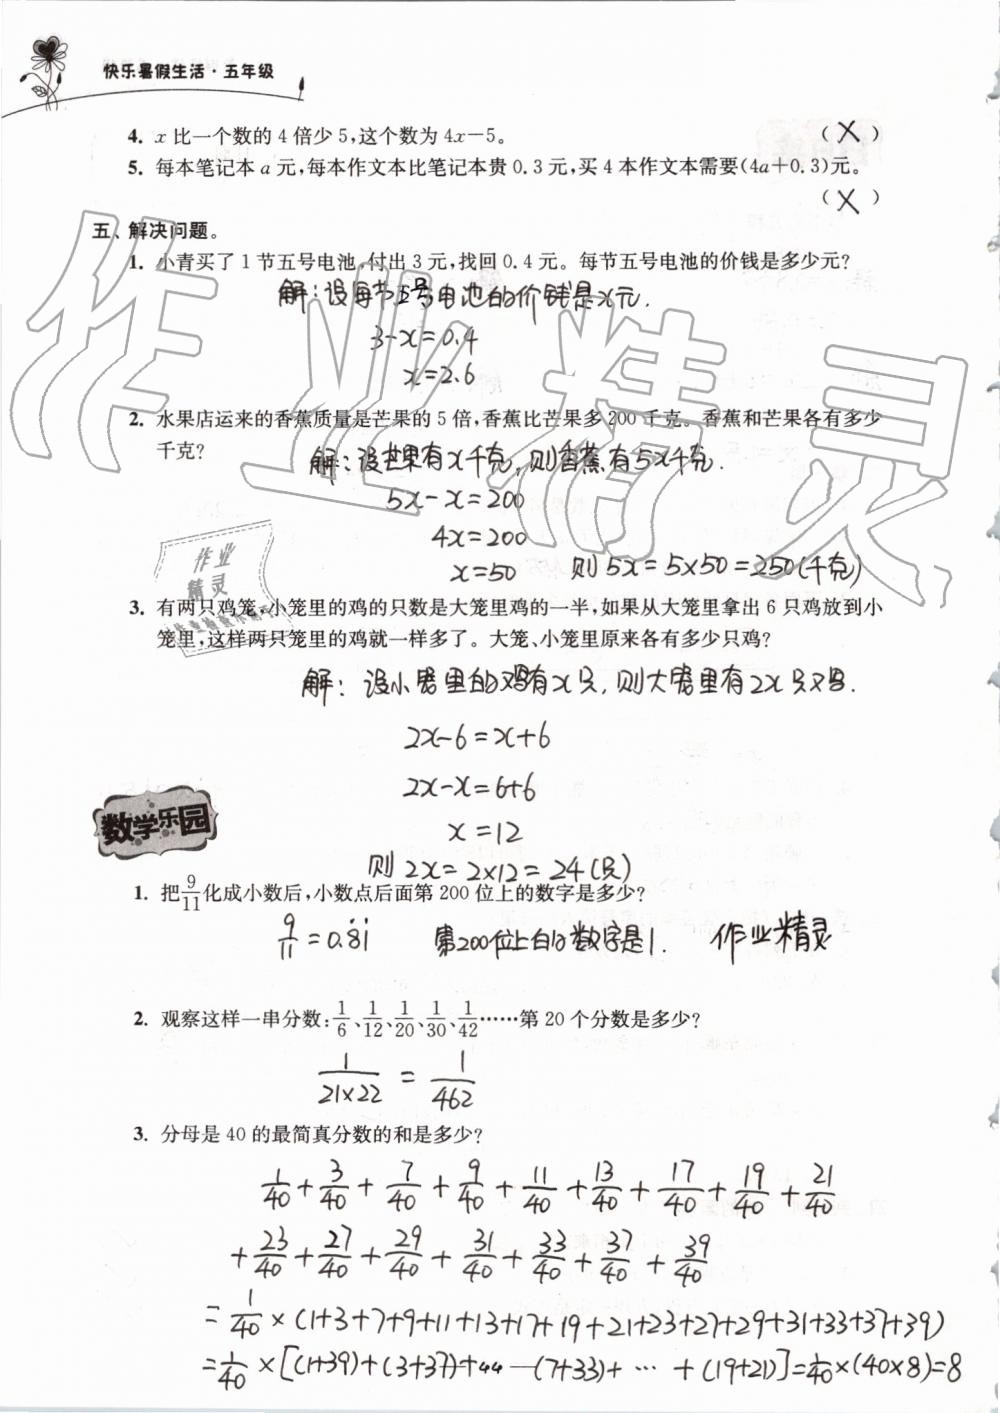 快乐暑假生活·五年级
4. x 比一个数的 4 倍少 5,这个数为 4x-5。 (X)
5. 每本笔记本 a 元,每本作文本比笔记本贵 0.3 元,买 4 本作文本需要(4a+0.3)元。
(X)
五、解决问题。
1. 小青买了 1 节五号电池,付出 3 元,找回 0.4 元。每节五号电池的价钱是多少元?
解:设每节五号电池的价钱是x元.
3-x=0.4
x=2.6
2. 水果店运来的香蕉质量是芒果的 5 倍,香蕉比芒果多 200 千克。香蕉和芒果各有多少
千克?
解:设芒果有x千克,则香蕉有5x千克.
5x-x=200
4x=200
x=50 则5x=5×50=250(千克)
3. 有两只鸡笼,小笼里的鸡的只数是大笼里鸡的一半,如果从大笼里拿出 6 只鸡放到小
笼里,这样两只笼里的鸡就一样多了。大笼、小笼里原来各有多少只鸡?
解:设小笼里的鸡有x只,则大笼里有2x只鸡.
2x-6=x+6
2x-x=6+6
x=12
则2x=2×12=24(只)
数学乐园
1. 把9/11化成小数后,小数点后面第 200 位上的数字是多少?
9/11=0.8̇1̇ 第200位上的数字是1. 作业精灵
2. 观察这样一串分数:1/6、1/12、1/20、1/30、1/42……第 20 个分数是多少?
1/21×22 = 1/462
3. 分母是 40 的最简真分数的和是多少?
1/40+3/40+7/40+9/40+11/40+13/40+17/40+19/40+21/40
+23/40+27/40+29/40+31/40+33/40+37/40+39/40
=1/40×(1+3+7+9+11+13+17+19+21+23+27+29+31+33+37+39)
=1/40×[(1+39)+(3+37)+(7+33)+…+(19+21)]=1/40×(40×8)=8
作业精灵
作业
精灵